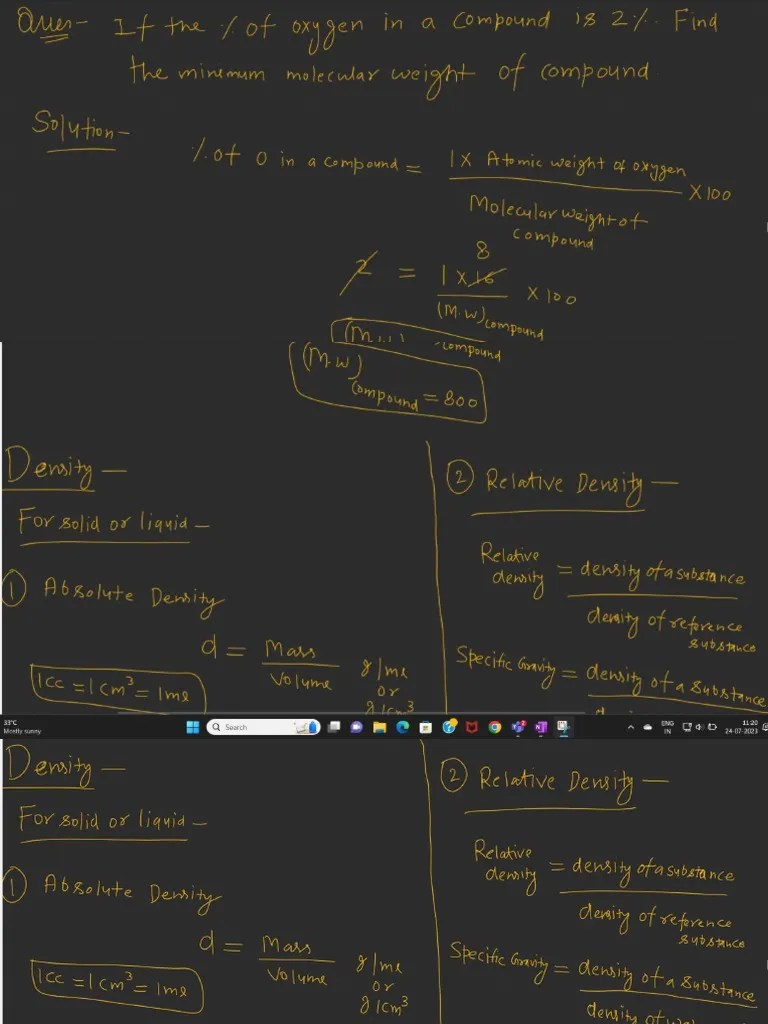 Ques- If the % of oxygen in a compound is 2%. Find
the minimum molecular weight of compound
Solution-
% of O in a compound = 1 x Atomic weight of oxygen x 100
Molecular weight of
compound
8
2 = 1 x 16 x 100
(M.W) compound
(M... compound
(M.W) compound = 800
Density -
For solid or liquid -
① Absolute Density
d = Mass
Volume
g/ml
or
g/cm³
1cc = 1cm³ = 1ml
② Relative Density -
Relative density = density of a substance
density of reference
substance
Specific Gravity = density of a substance
33°C
Mostly sunny
Search
ENG
IN
11:20
24-07-2023
Density -
For solid or liquid -
① Absolute Density
d = Mass
Volume
g/ml
or
g/cm³
1cc = 1cm³ = 1ml
② Relative Density -
Relative density = density of a substance
density of reference
substance
Specific Gravity = density of a substance
density of